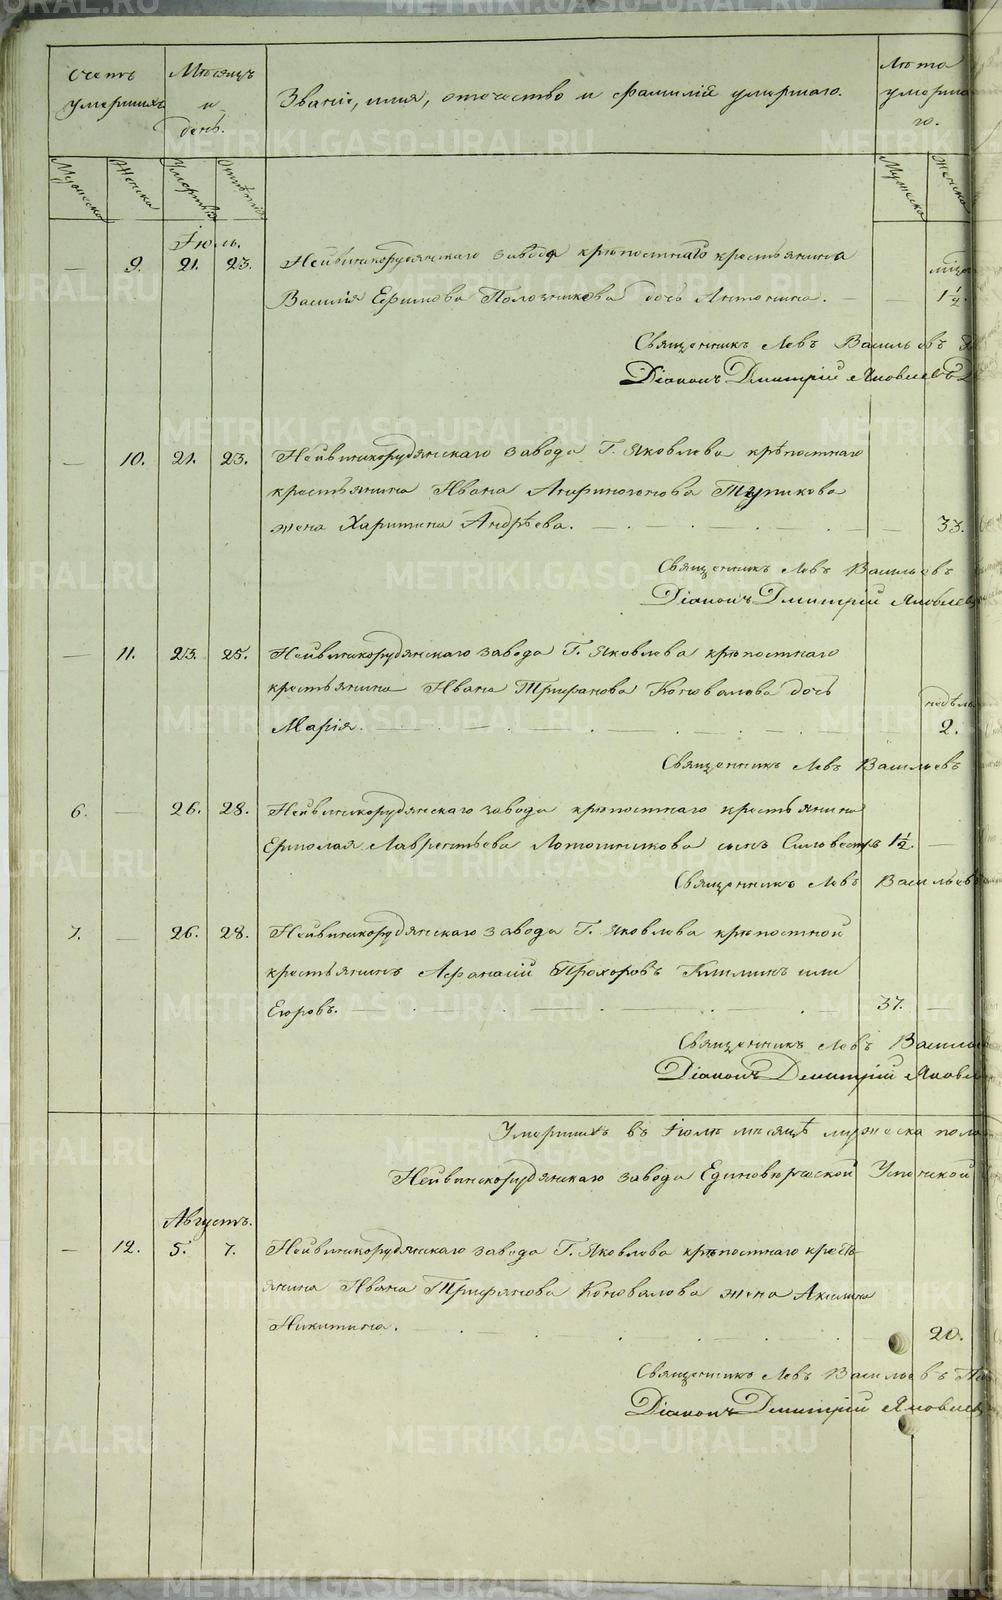 Счетъ умершихъ
Мѣсяцъ и день.
Званіе, имя, отчество и фамилія умершаго.
Лѣта умерша го.
Мужеска
Женска
Умертвія
Отпѣтія
Мужеска
Женска
Іюль.
— 9. 21. 23. Нейвинскорудянскаго завода крѣпостнаго крестьянина
Василія Ефимова Полозникова дочь Антонина. — 1½.
Священникъ Левъ Васильевъ
Діаконъ Дмитрій Яковлевъ
— 10. 21. 23. Нейвинскорудянскаго завода Г. Яковлева крѣпостнаго
крестьянина Ивана Анфиногенова Турикова
жена Харитина Андрѣева. — 33.
Священникъ Левъ Васильевъ
Діаконъ Дмитрій Яковлевъ
— 11. 23. 25. Нейвинскорудянскаго завода Г. Яковлева крѣпостнаго
крестьянина Ивана Трифанова Коновалова дочь
недѣль
Марія. — 2.
Священникъ Левъ Васильевъ
6. — 26. 28. Нейвинскорудянскаго завода крѣпостнаго крестьянина
Ермолая Лаврентьева Лотошникова сынъ Силовестръ 1½. —
Священникъ Левъ Васильевъ
7. — 26. 28. Нейвинскорудянскаго завода Г. Яковлева крѣпостной
крестьянинъ Афанасій Прохоровъ или
Егоровъ. — 37. —
Священникъ Левъ
Діаконъ Дмитрій
Умершихъ въ Іюлѣ мѣсяцѣ мужеска пола
Нейвинскорудянскаго завода Единовѣрческой Успенской
Августъ.
— 12. 5. 7. Нейвинскорудянскаго завода Г. Яковлева крѣпостнаго кресть-
янина Ивана Трифанова Коновалова жена Акилина
Никитина. — 20.
Священникъ Левъ Васильевъ
Діаконъ Дмитрій Яковлевъ
METRIKI.GASO-URAL.RU